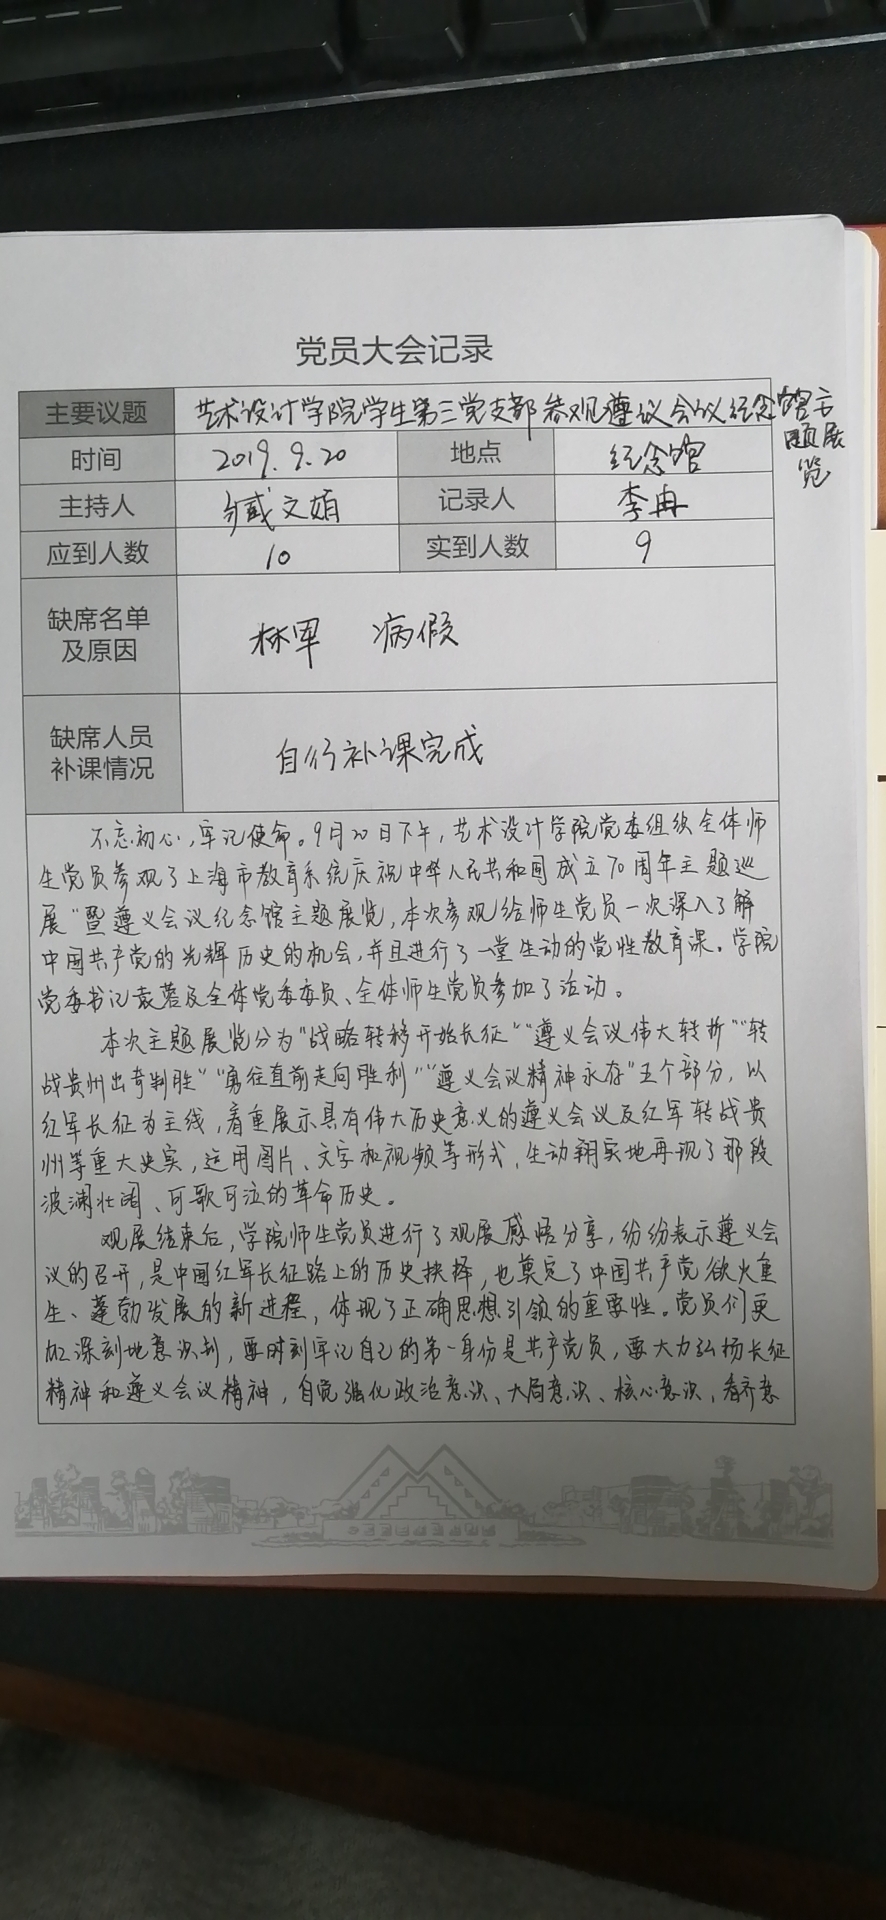 党员大会记录
主要议题 艺术设计学院学生第三党支部参观遵议会议纪念馆主
题展
览
时间 2019.9.20 地点 纪念馆
主持人 臧文娟 记录人 李冉
应到人数 10 实到人数 9
缺席名单
及原因
林军 病假
缺席人员
补课情况
自行补课完成
不忘初心,牢记使命。9月20日下午,艺术设计学院党委组织全体师
生党员参观了上海市教育系统庆祝中华人民共和国成立70周年主题巡
展"暨遵义会议纪念馆主题展览,本次参观给师生党员一次深入了解
中国共产党的光辉历史的机会,并且进行了一堂生动的党性教育课。学院
党委书记袁蓉及全体党委委员、全体师生党员参加了活动。
本次主题展览分为"战略转移开始长征""遵义会议伟大转折""转
战贵州出奇制胜""勇往直前走向胜利""遵义会议精神永存"五个部分,以
红军长征为主线,着重展示具有伟大历史意义的遵义会议及红军转战贵
州等重大史实,运用图片、文字和视频等形式,生动翔实地再现了那段
波澜壮阔、可歌可泣的革命历史。
观展结束后,学院师生党员进行了观展感悟分享,纷纷表示遵义会
议的召开,是中国红军长征路上的历史抉择,也奠定了中国共产党欲火重
生、蓬勃发展的新进程,体现了正确思想引领的重要性。党员们更
加深刻地意识到,要时刻牢记自己的第一身份是共产党员,要大力弘扬长征
精神和遵义会议精神,自觉强化政治意识、大局意识、核心意识,看齐意